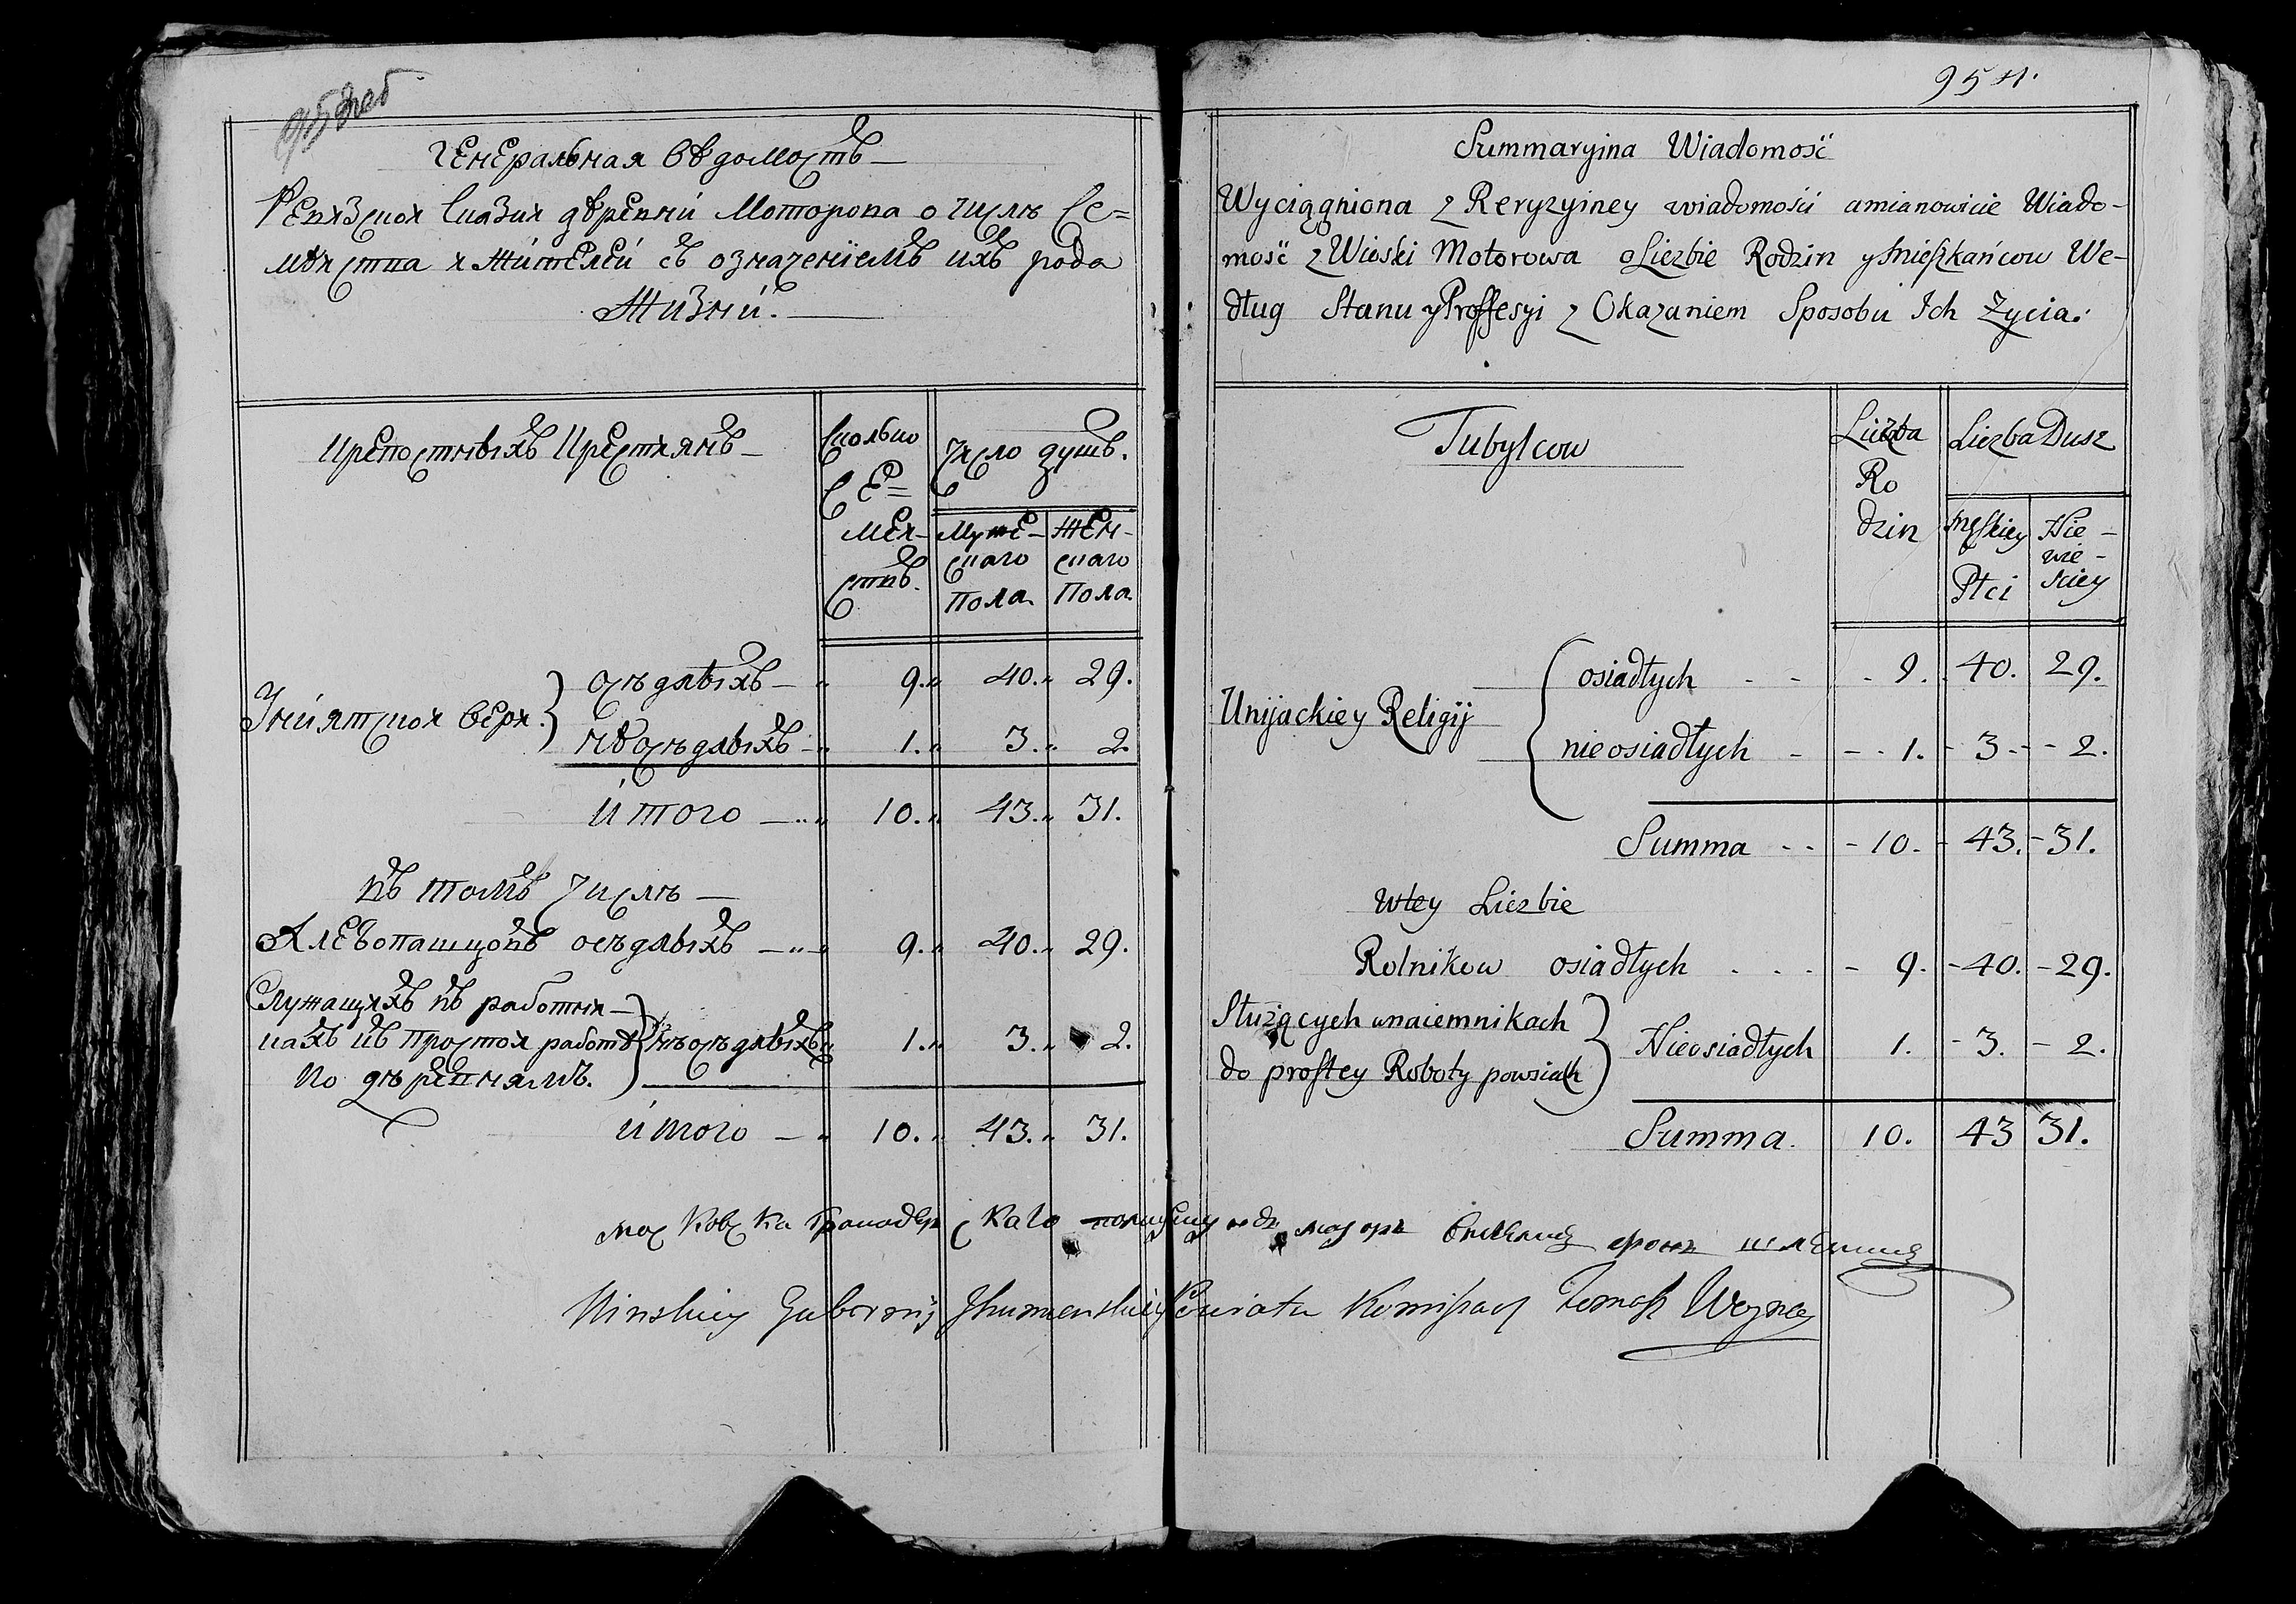 Генеральная ведомость
Ревизской Сказки деревни Моторова о числе Се=
мейства и жителей съ означениемъ ихъ рода
Жизни.
Крепостныхъ Крестьянъ
Сколько
Се=
мей-
ствъ.
Число душъ.
Мужe-
скаго
Пола
Жен-
скаго
Пола
Униятской Вери.
оседлыхъ 9. 40. 29.
не оседлыхъ 1. 3. 2.
итого 10. 43. 31.
въ томъ числе
Хлебопашцовъ оседлыхъ 9. 40. 29.
Служащихъ въ работни-
кахъ въ простой работе
по деревнямъ.
не оседлыхъ 1. 3. 2.
итого 10. 43. 31.
954.
Summaryina Wiadomość
Wyciągniona z Rewyzyiney wiadomości amianowicie Wiado-
mość z Wioski Motorowa o Liczbie Rodzin y Mieszkańcow We-
dług Stanu y Proffesyi z Okazaniem Sposobu Ich Zycia.
Tubylcow
Liczba
Ro
dzin
Liczba Dusz
męskiey
Płci
Nie-
wie-
sciey
Unijackiey Religij
osiadłych 9. 40. 29.
nieosiadłych 1. 3. 2.
Summa 10. 43. 31.
Wtey Liczbie
Rolnikow osiadłych 9. 40. 29.
Służących wnaiemnikach
do prostey Roboty powsiach
Nieosiadłych 1. 3. 2.
Summa. 10. 43 31.
Московска Гранодерскаго маиоръ
Minskiey Gubernij Ihumenskiey Powiatu Komisarz Tomasz Woyna